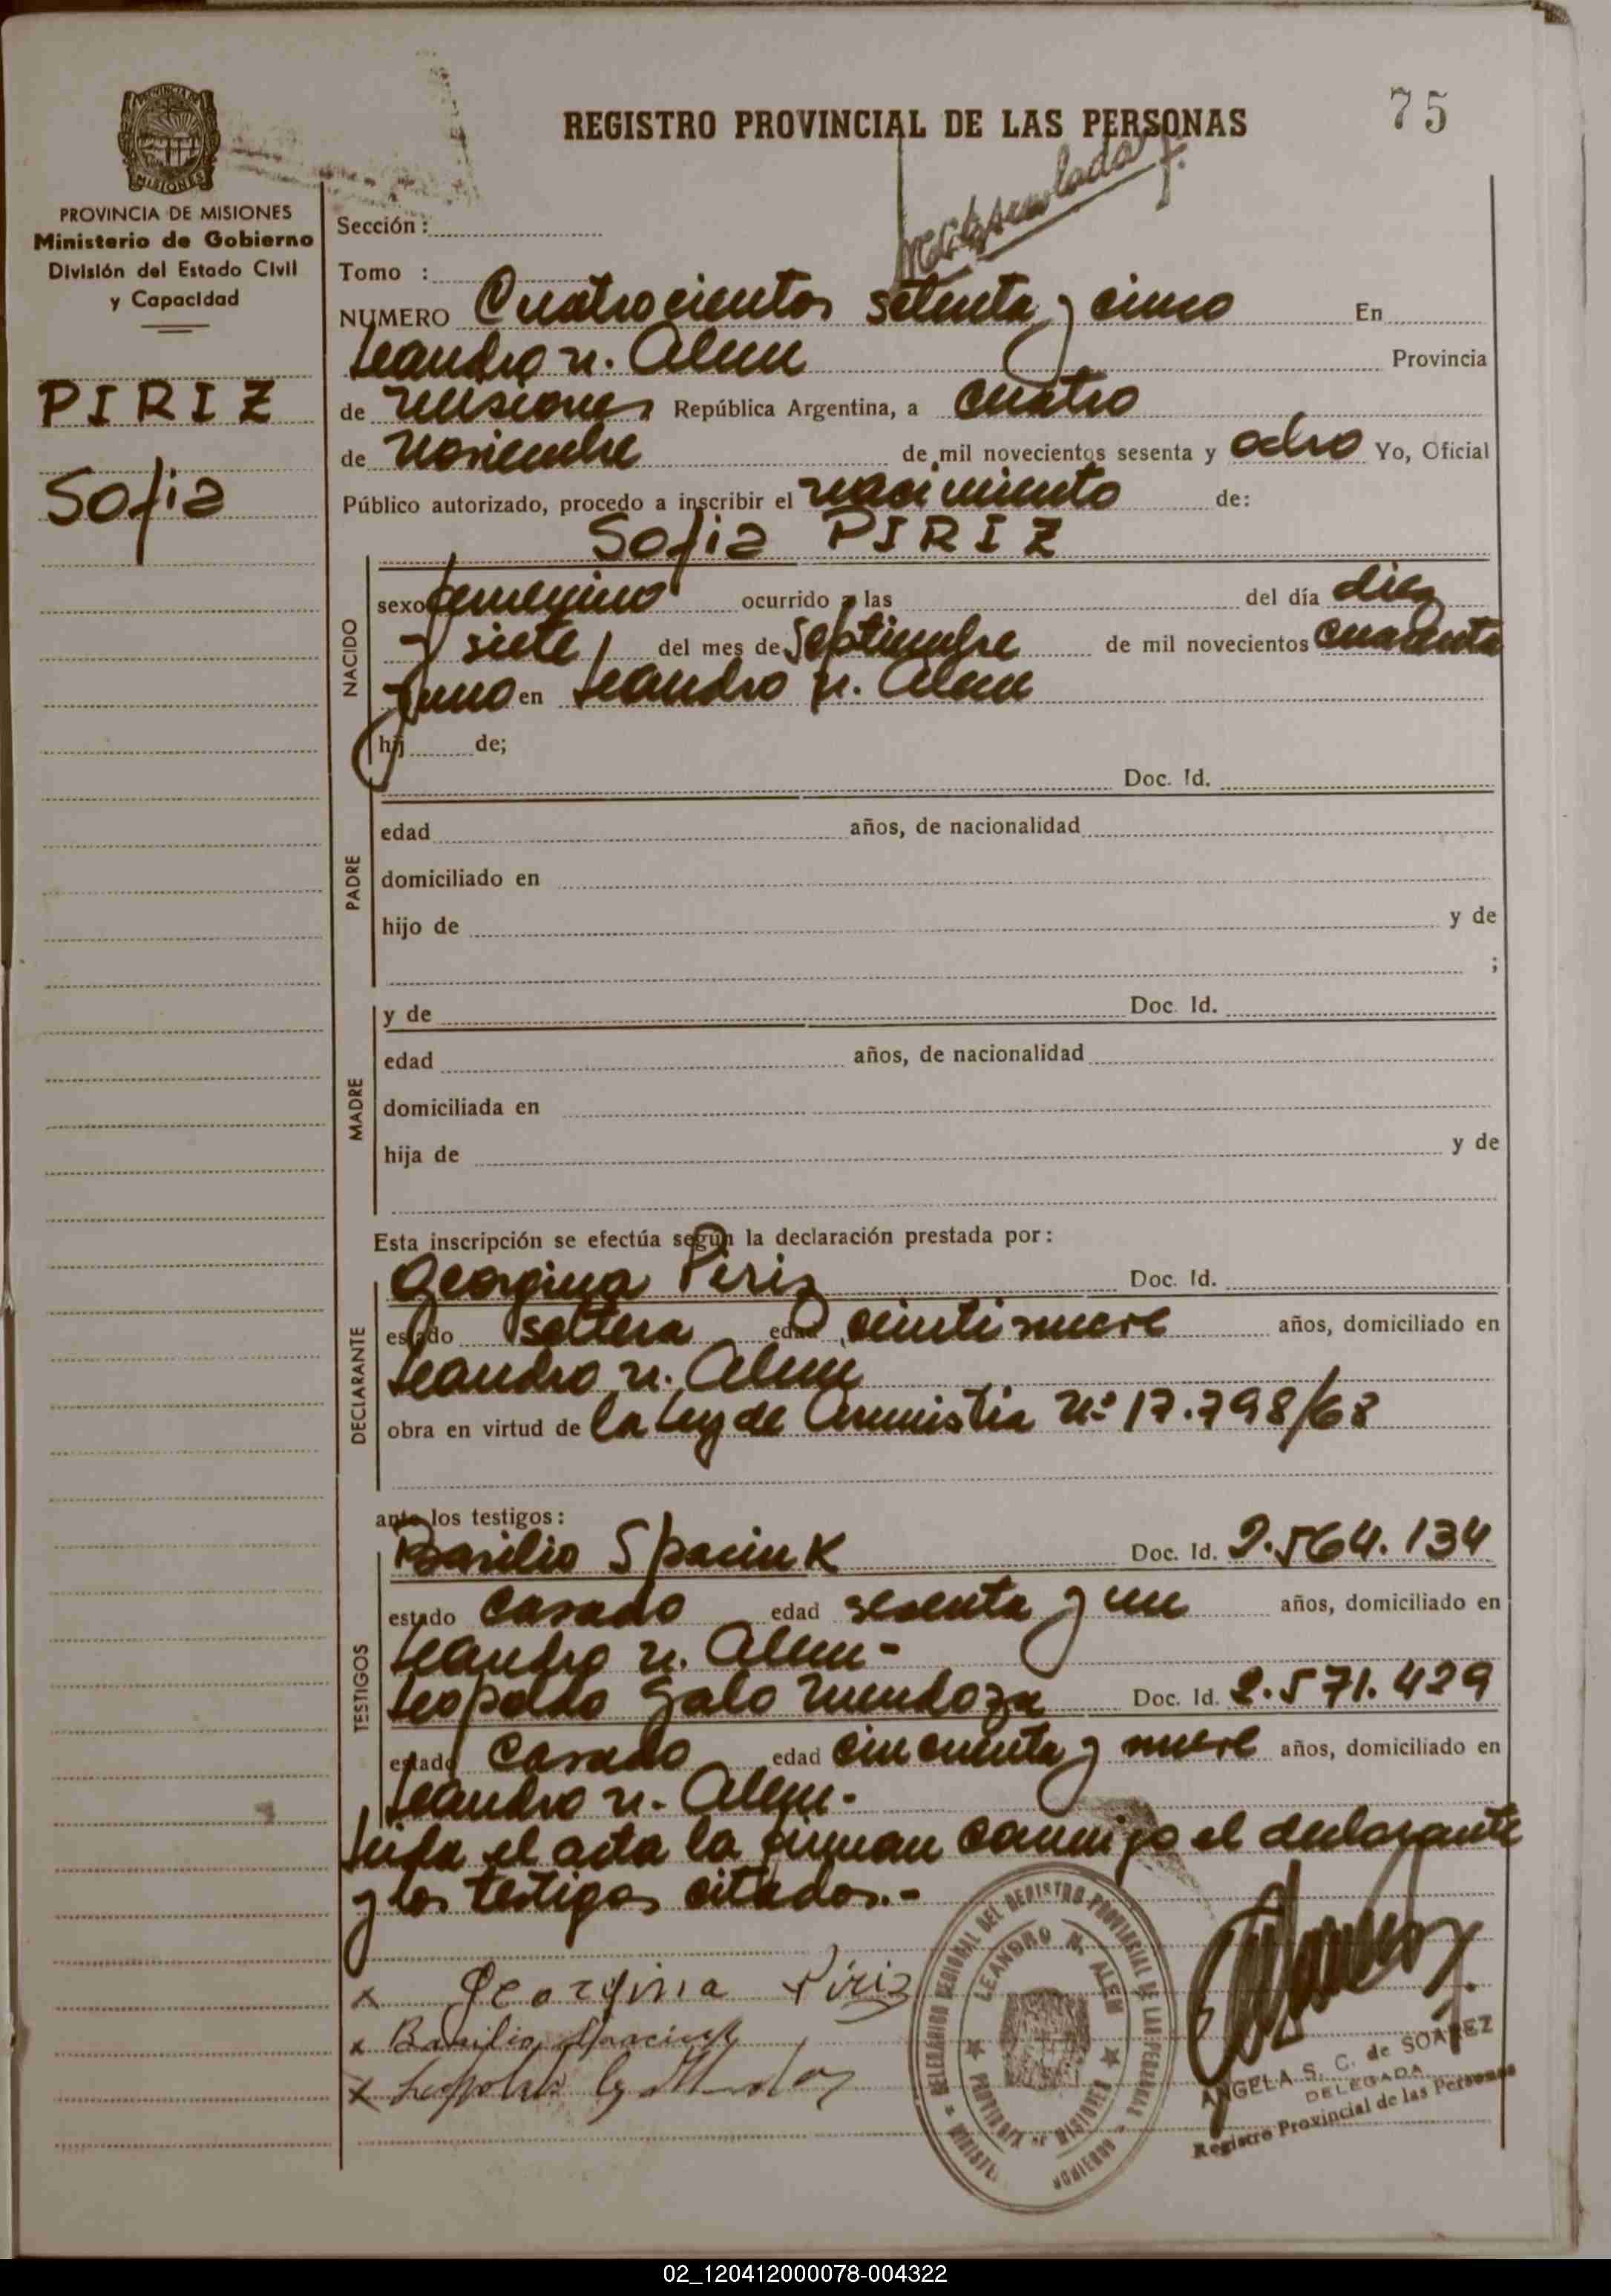 75
REGISTRO PROVINCIAL DE LAS PERSONAS
PROVINCIA DE MISIONES
MISIONES
PROVINCIA DE MISIONES
Ministerio de Gobierno
División del Estado Civil
y Capacidad
PIRIZ
Sofia
Sección :
Tomo :
NUMERO Cuatrocientos setenta y cinco En
Leandro N. Alem Provincia
de Misiones República Argentina, a cuatro
de Noviembre de mil novecientos sesenta y ocho Yo, Oficial
Público autorizado, procedo a inscribir el nacimiento de:
Sofia PIRIZ
NACIDO
sexo femenino ocurrido a las del día diez
y siete del mes de Septiembre de mil novecientos cuarenta
y uno en Leandro N. Alem
hij de;
Doc. Id.
PADRE
edad años, de nacionalidad
domiciliado en
hijo de y de
;
MADRE
y de Doc. Id.
edad años, de nacionalidad
domiciliada en
hija de y de
Esta inscripción se efectúa según la declaración prestada por:
DECLARANTE
Georgina Piriz Doc. Id.
estado soltera edad veintinueve años, domiciliado en
Leandro N. Alem
obra en virtud de la Ley de Amnistia Nº 17.798/68
ante los testigos:
TESTIGOS
Basilio Spaciuk Doc. Id. 2.564.134
estado casado edad sesenta y un años, domiciliado en
Leandro N. Alem-
Leopoldo Galo Mendoza Doc. Id. 2.571.429
estado casado edad cincuenta y nueve años, domiciliado en
Leandro N. Alem.
Leida el acta la firman conmigo el declarante
y los testigos citados.-
x Georgina Piriz
x Basilio Spaciuk
x
REGIONAL DEL REGISTRO PROVINCIAL DE LAS PERSONAS
LEANDRO N. ALEM
PROVINCIA DE MISIONES
GOBIERNO
ANGELA S. C. de SOAREZ
DELEGADA
Registro Provincial de las Personas
02_120412000078-004322